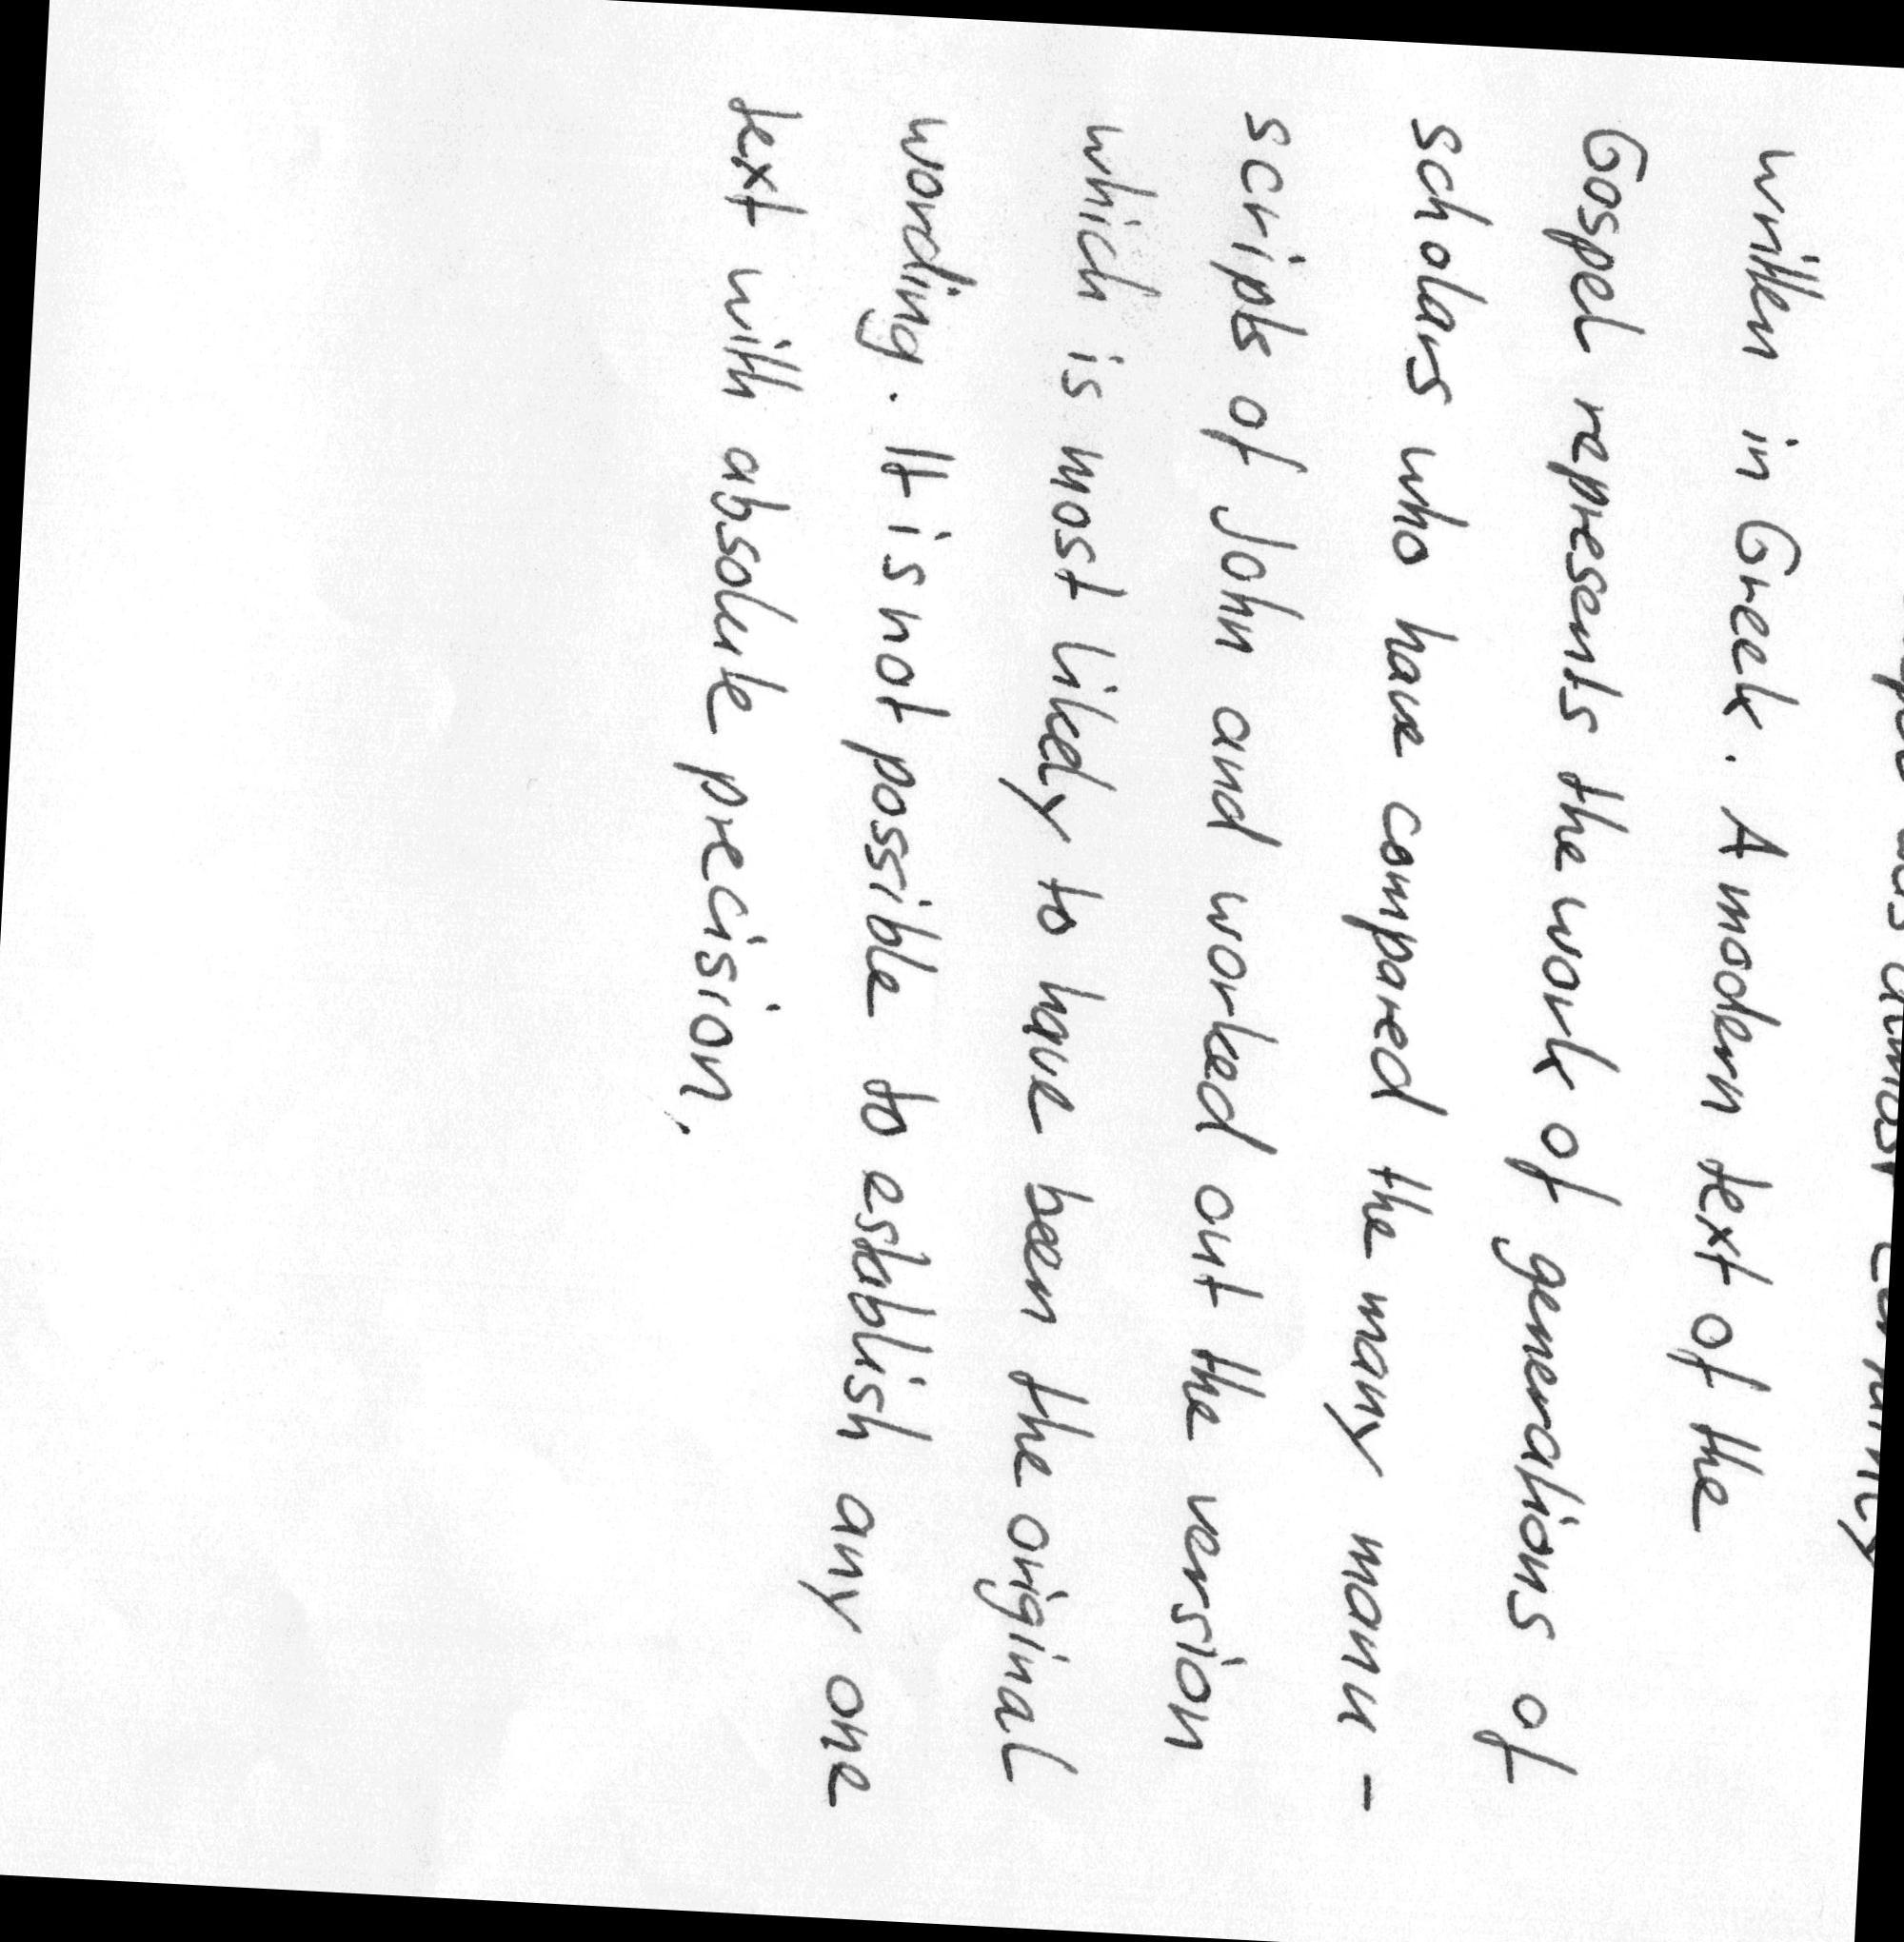 written in Greek. A modern text of the
Gospel represents the work of generations of
scholars who have compared the many manu -
scripts of John and worked out the version
which is most likely to have been the original
wording. It is not possible to establish any one
text with absolute precision,